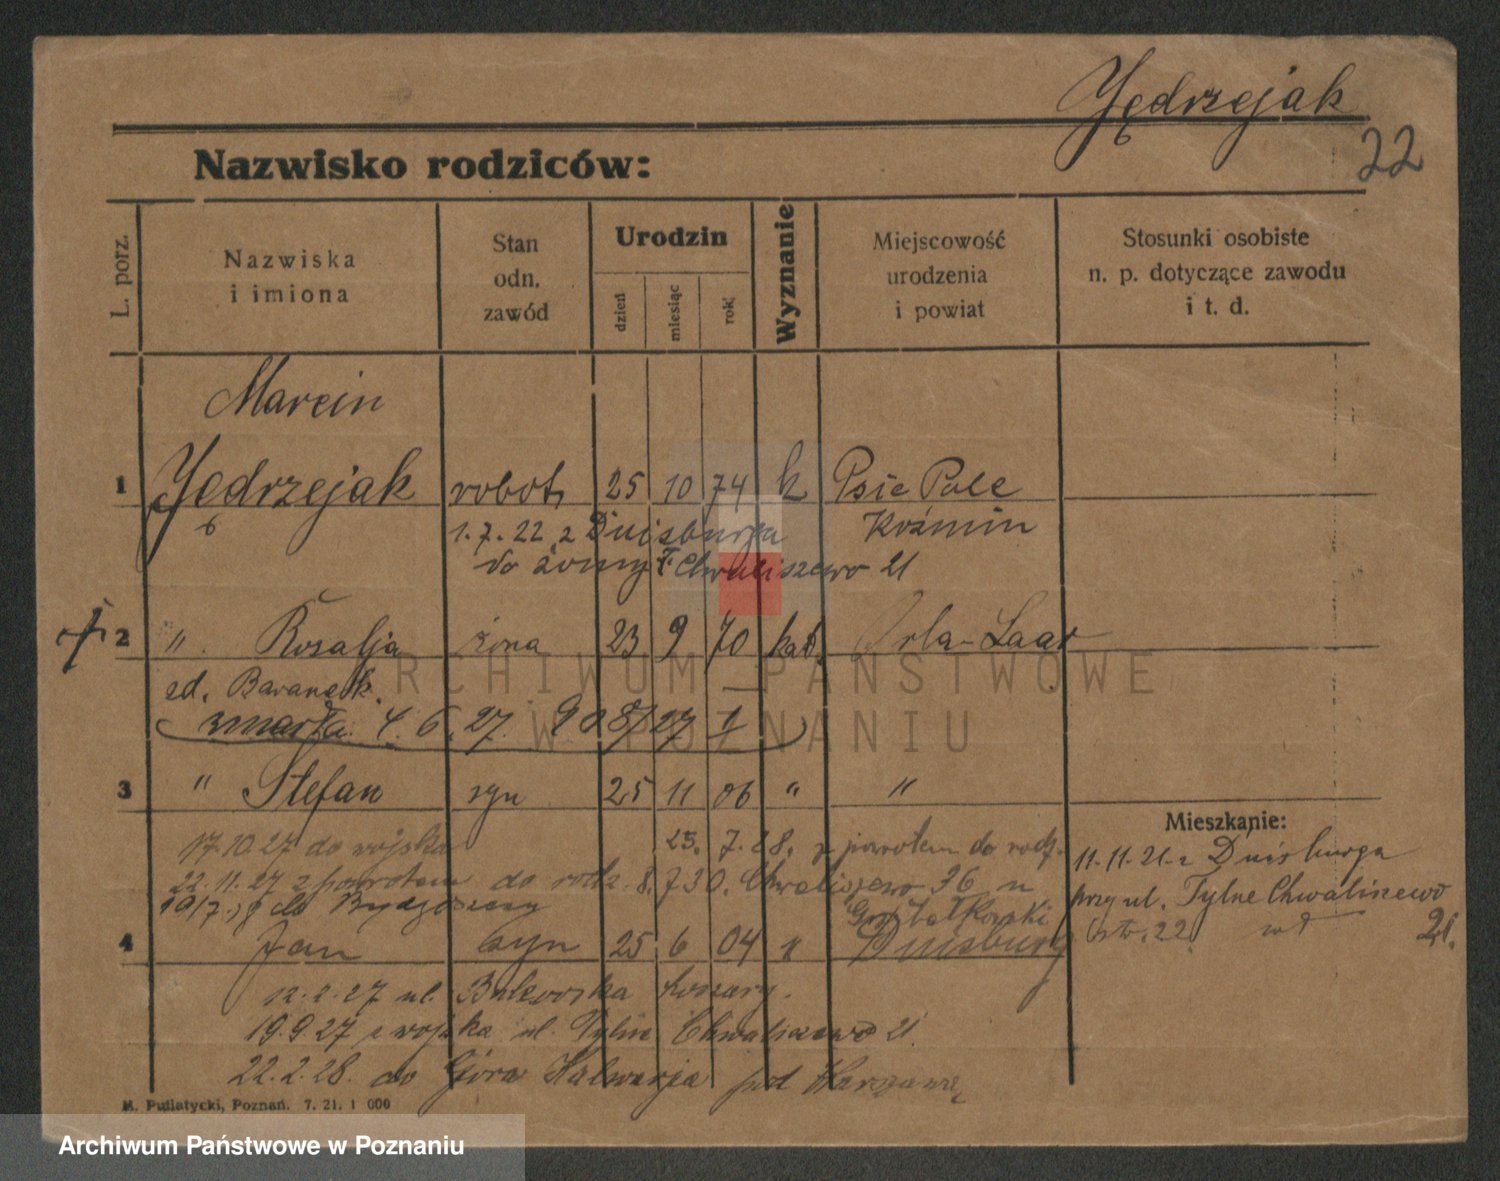 Jędrzejak
22
Nazwisko rodziców:
L. porz.
Nazwiska
i imiona
Stan
odn.
zawód
Urodzin
dzień
miesiąc
rok
Wyznanie
Miejscowość
urodzenia
i powiat
Stosunki osobiste
n. p. dotyczące zawodu
i t. d.
Marcin
1 Jędrzejak robot. 25 10 74 k Psie Pole
1.7.22 z Duisburga Koźmin
do żony T. Chwaliszewo 21
2 " Rozalja żona 23 9 70 kat. Orla-Laar
zd. Baranek.
zmarła 4.6.27. 987/27
3 " Stefan syn 25 11 06 " "
Mieszkanie:
17.10.27 do wojska 25.7.28. z powrotem do rodz.
11.11.21. z Duisburga
22.11.27 z powrotem do rodz. 8.7.30. Chwaliszewo 36 u
przy ul. Tylne Chwaliszewo
19/7 do Bydgoszczy
22 21.
4 Jan syn 25 6 04 " Duisburg
12.2.27 ul. Bukowska koszary.
19.9.27 z wojska ul. Tylne Chwaliszewo 21.
22.2.28. do Góra Kalwarja pod Warszawą
M. Putiatycki, Poznań. 7. 21. 1 000
ARCHIWUM PAŃSTWOWE
W POZNANIU
Archiwum Państwowe w Poznaniu